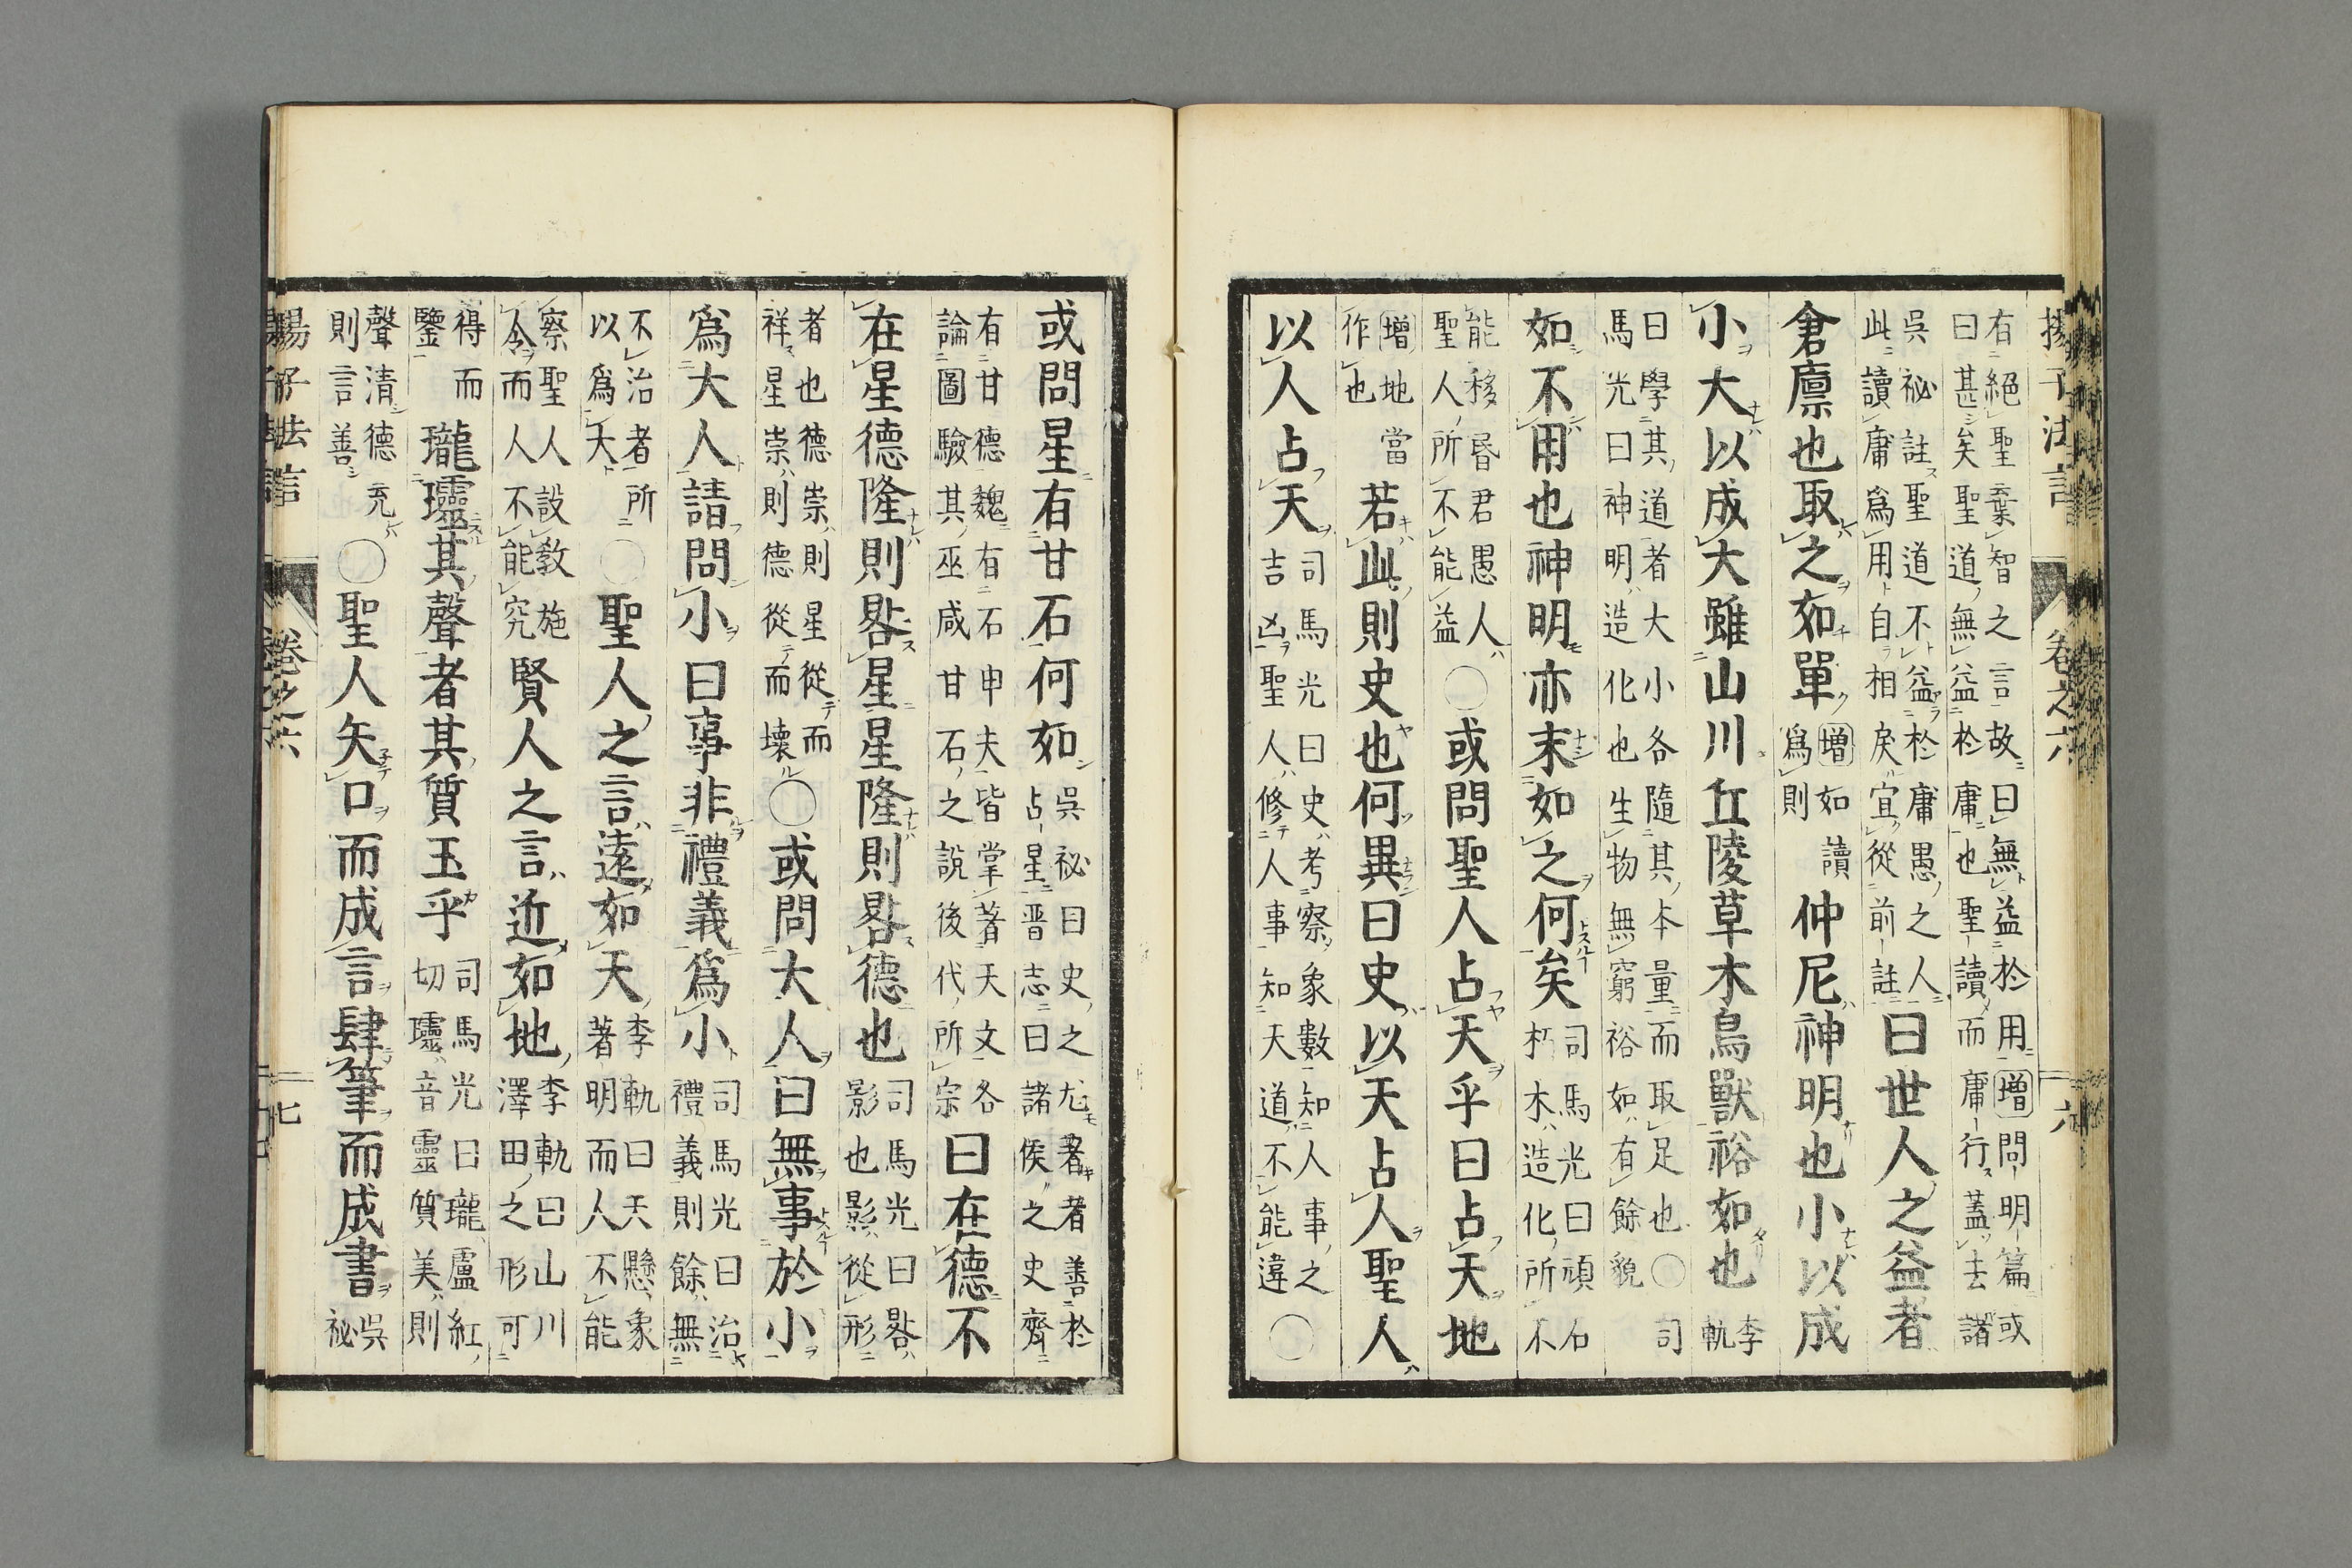 揚子法言 卷之六 六
有絕聖棄智之言故曰無益於用增問明篇或
曰甚矣聖道無益於庸也聖讀而庸行蓋去諸
吳祕註聖道不益於庸愚之人
此讀庸爲用自相戾宜從前註
曰世人之益者
倉廩也取之如單
增如讀
爲則
仲尼神明也小以成
小大以成大雖山川丘陵草木鳥獸裕如也
李
軌
曰學其道者大小各隨其本量而取足也〇司
馬光曰神明造化也生物無窮裕如有餘貌
如不用也神明亦末如之何矣
司馬光曰頑石
朽木造化所不
能移昏君愚人
聖人所不能益
〇或問聖人占天乎曰占天地
增地當
作也
若此則史也何異曰史以天占人聖人
以人占天
司馬光曰史考察象數知人事之
吉凶聖人修人事知天道不能違
〇
或問星有甘石何如
吳祕曰史之尤著者善於
占星晉志曰諸侯之史齊
有甘德魏有石申夫皆掌著天文各
論圖驗其巫咸甘石之說後代所宗
曰在德不
在星德隆則晷星星隆則晷德也
司馬光曰晷
影也影從形
者也德崇則星從而
祥星崇則德從而壞
〇或問大人曰無事於小
爲大人請問小曰事非禮義爲小
司馬光曰治
禮義則餘無
不治者所
以爲大
〇聖人之言遠如天
李軌曰天懸象
著明而人不能
察聖人設教施
令而人不能究
賢人之言近如地
李軌曰山川
澤田之形可
得而
鑒
瓏𤫊其聲者其質玉乎
司馬光曰瓏盧紅
切𤫊音靈質美則
聲清德充
則言善
〇聖人矢口而成言肆筆而成書
吳
祕
揚子法言 卷之六 七